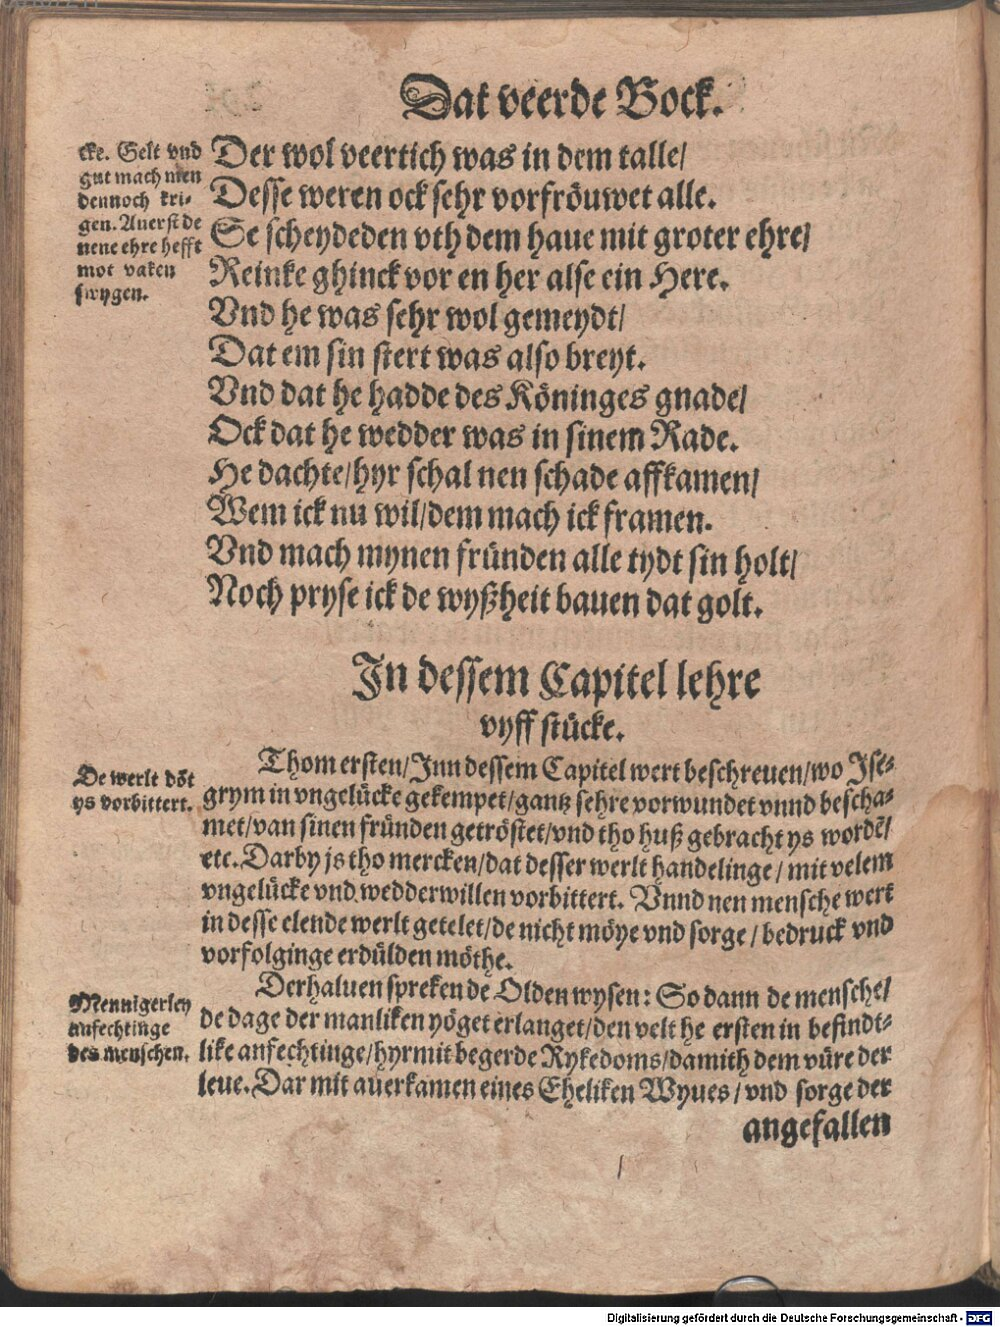 Dat veerde Bock.
cke. Gelt vnd
gut mach men
dennoch kri-
gen. Auerst de
nene ehre hefft
mot vaken
swygen.
Der wol veertich was in dem talle/
Desse weren ock sehr vorfröuwet alle.
Se scheydeden vth dem haue mit groter ehre/
Reinke ghinck vor en her alse ein Here.
Vnd he was sehr wol gemeydt/
Dat em sin stert was also breyt.
Vnd dat he hadde des Köninges gnade/
Ock dat he wedder was in sinem Rade.
He dachte/hyr schal nen schade affkamen/
Wem ick nu wil/dem mach ick framen.
Vnd mach mynen fründen alle tydt sin holt/
Noch pryse ick de wyßheit bauen dat golt.
In dessem Capitel lehre
vyff stücke.
De werlt döt
ys vorbittert.
Thom ersten/Inn dessem Capitel wert beschreuen/wo Ise-
grym in vngelücke gekempet/gantz sehre vorwundet vnnd bescha-
met/van sinen fründen getröstet/vnd tho huß gebracht ys wordē/
etc. Darby js tho mercken/dat desser werlt handelinge/mit velem
vngelücke vnd wedderwillen vorbittert. Vnnd nen mensche wert
in desse elende werlt getelet/de nicht möye vnd sorge/bedruck vnd
vorfolginge erdülden möthe.
Mennigerley
anfechtinge
des menschen.
Derhaluen spreken de Olden wysen: So dann de mensche/
de dage der manliken yöget erlanget/den velt he ersten in befindt-
like anfechtinge/hyrmit begerde Rykedoms/damith dem vüre der
leue. Dar mit auerkamen eines Eheliken Wyues/vnd sorge der
angefallen
Digitalisierung gefördert durch die Deutsche Forschungsgemeinschaft - DFG